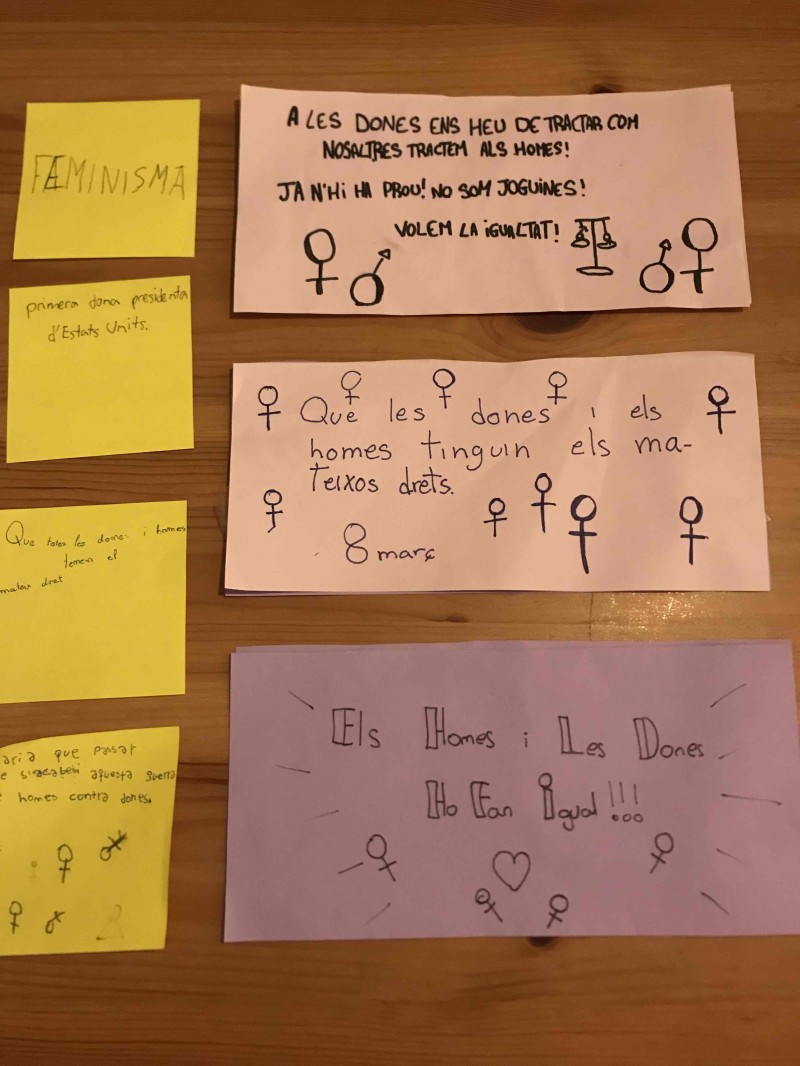 FÆMINISMA
primera dona presidenta
d'Estats Units.
Que totes les dones i homes
tenem el
mateix dret
aria que passar
e s'acabeni aquesta guerra
homes contra dones.
A LES DONES ENS HEU DE TRACTAR COM
NOSALTRES TRACTEM ALS HOMES!
JA N'HI HA PROU! NO SOM JOGUINES!
VOLEM LA IGUALTAT!
Que les dones i els
homes tinguin els ma-
teixos drets.
8 març
Els Homes i Les Dones
Ho Fan Igual!!!